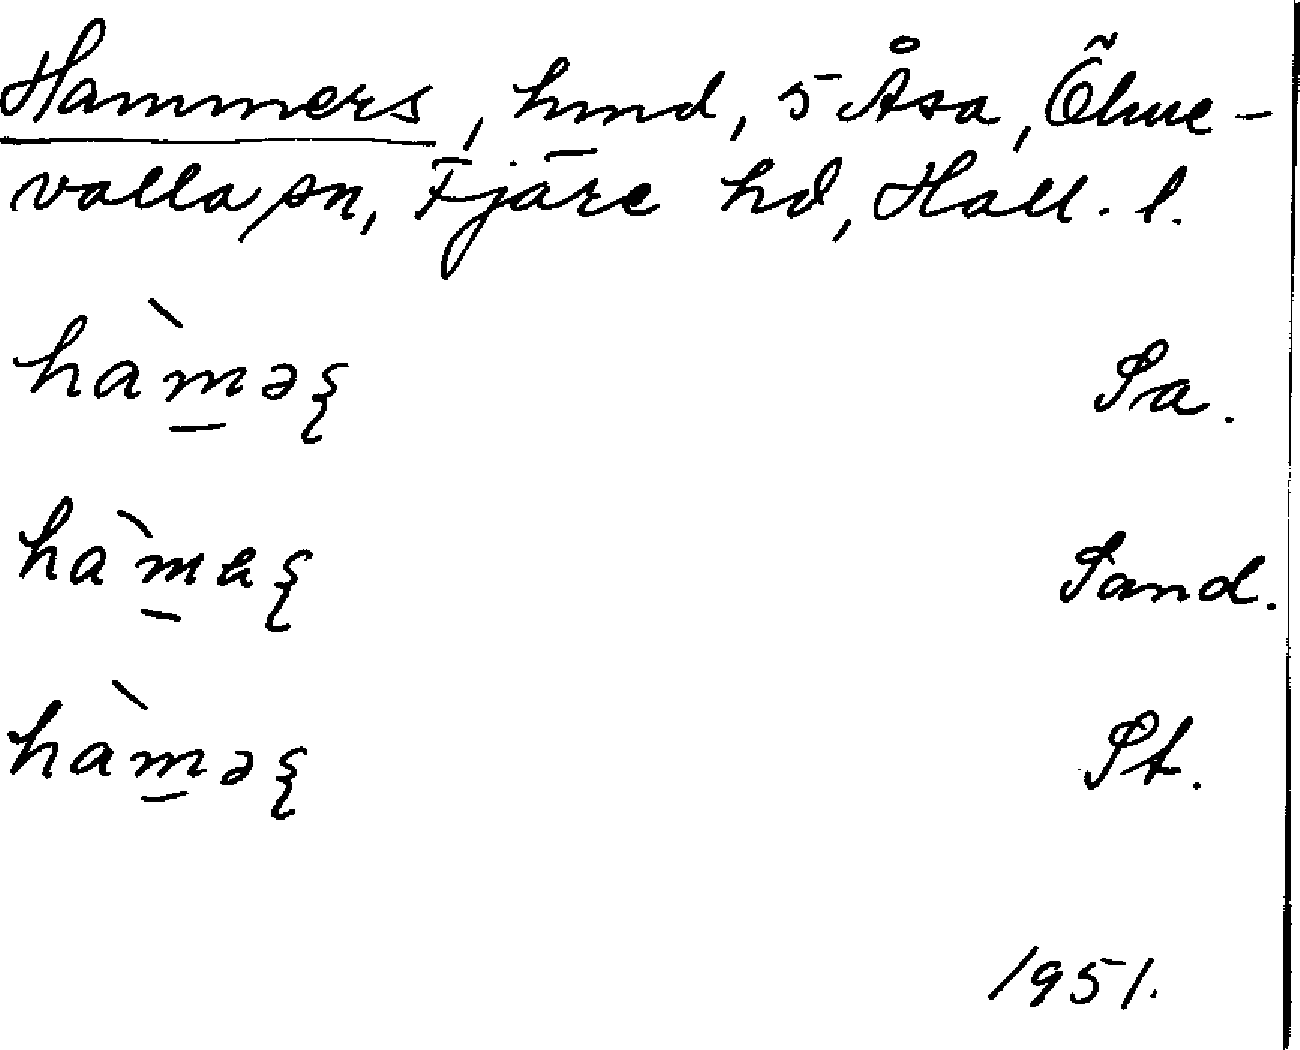 Hammers, hmd, 5 Åsa, Ölme-
valla sn, Fjäre hd, Hall. l.
hàm̱əꞩ Sa.
hàm̱aꞩ Sand.
hàm̱əꞩ St.
1951.